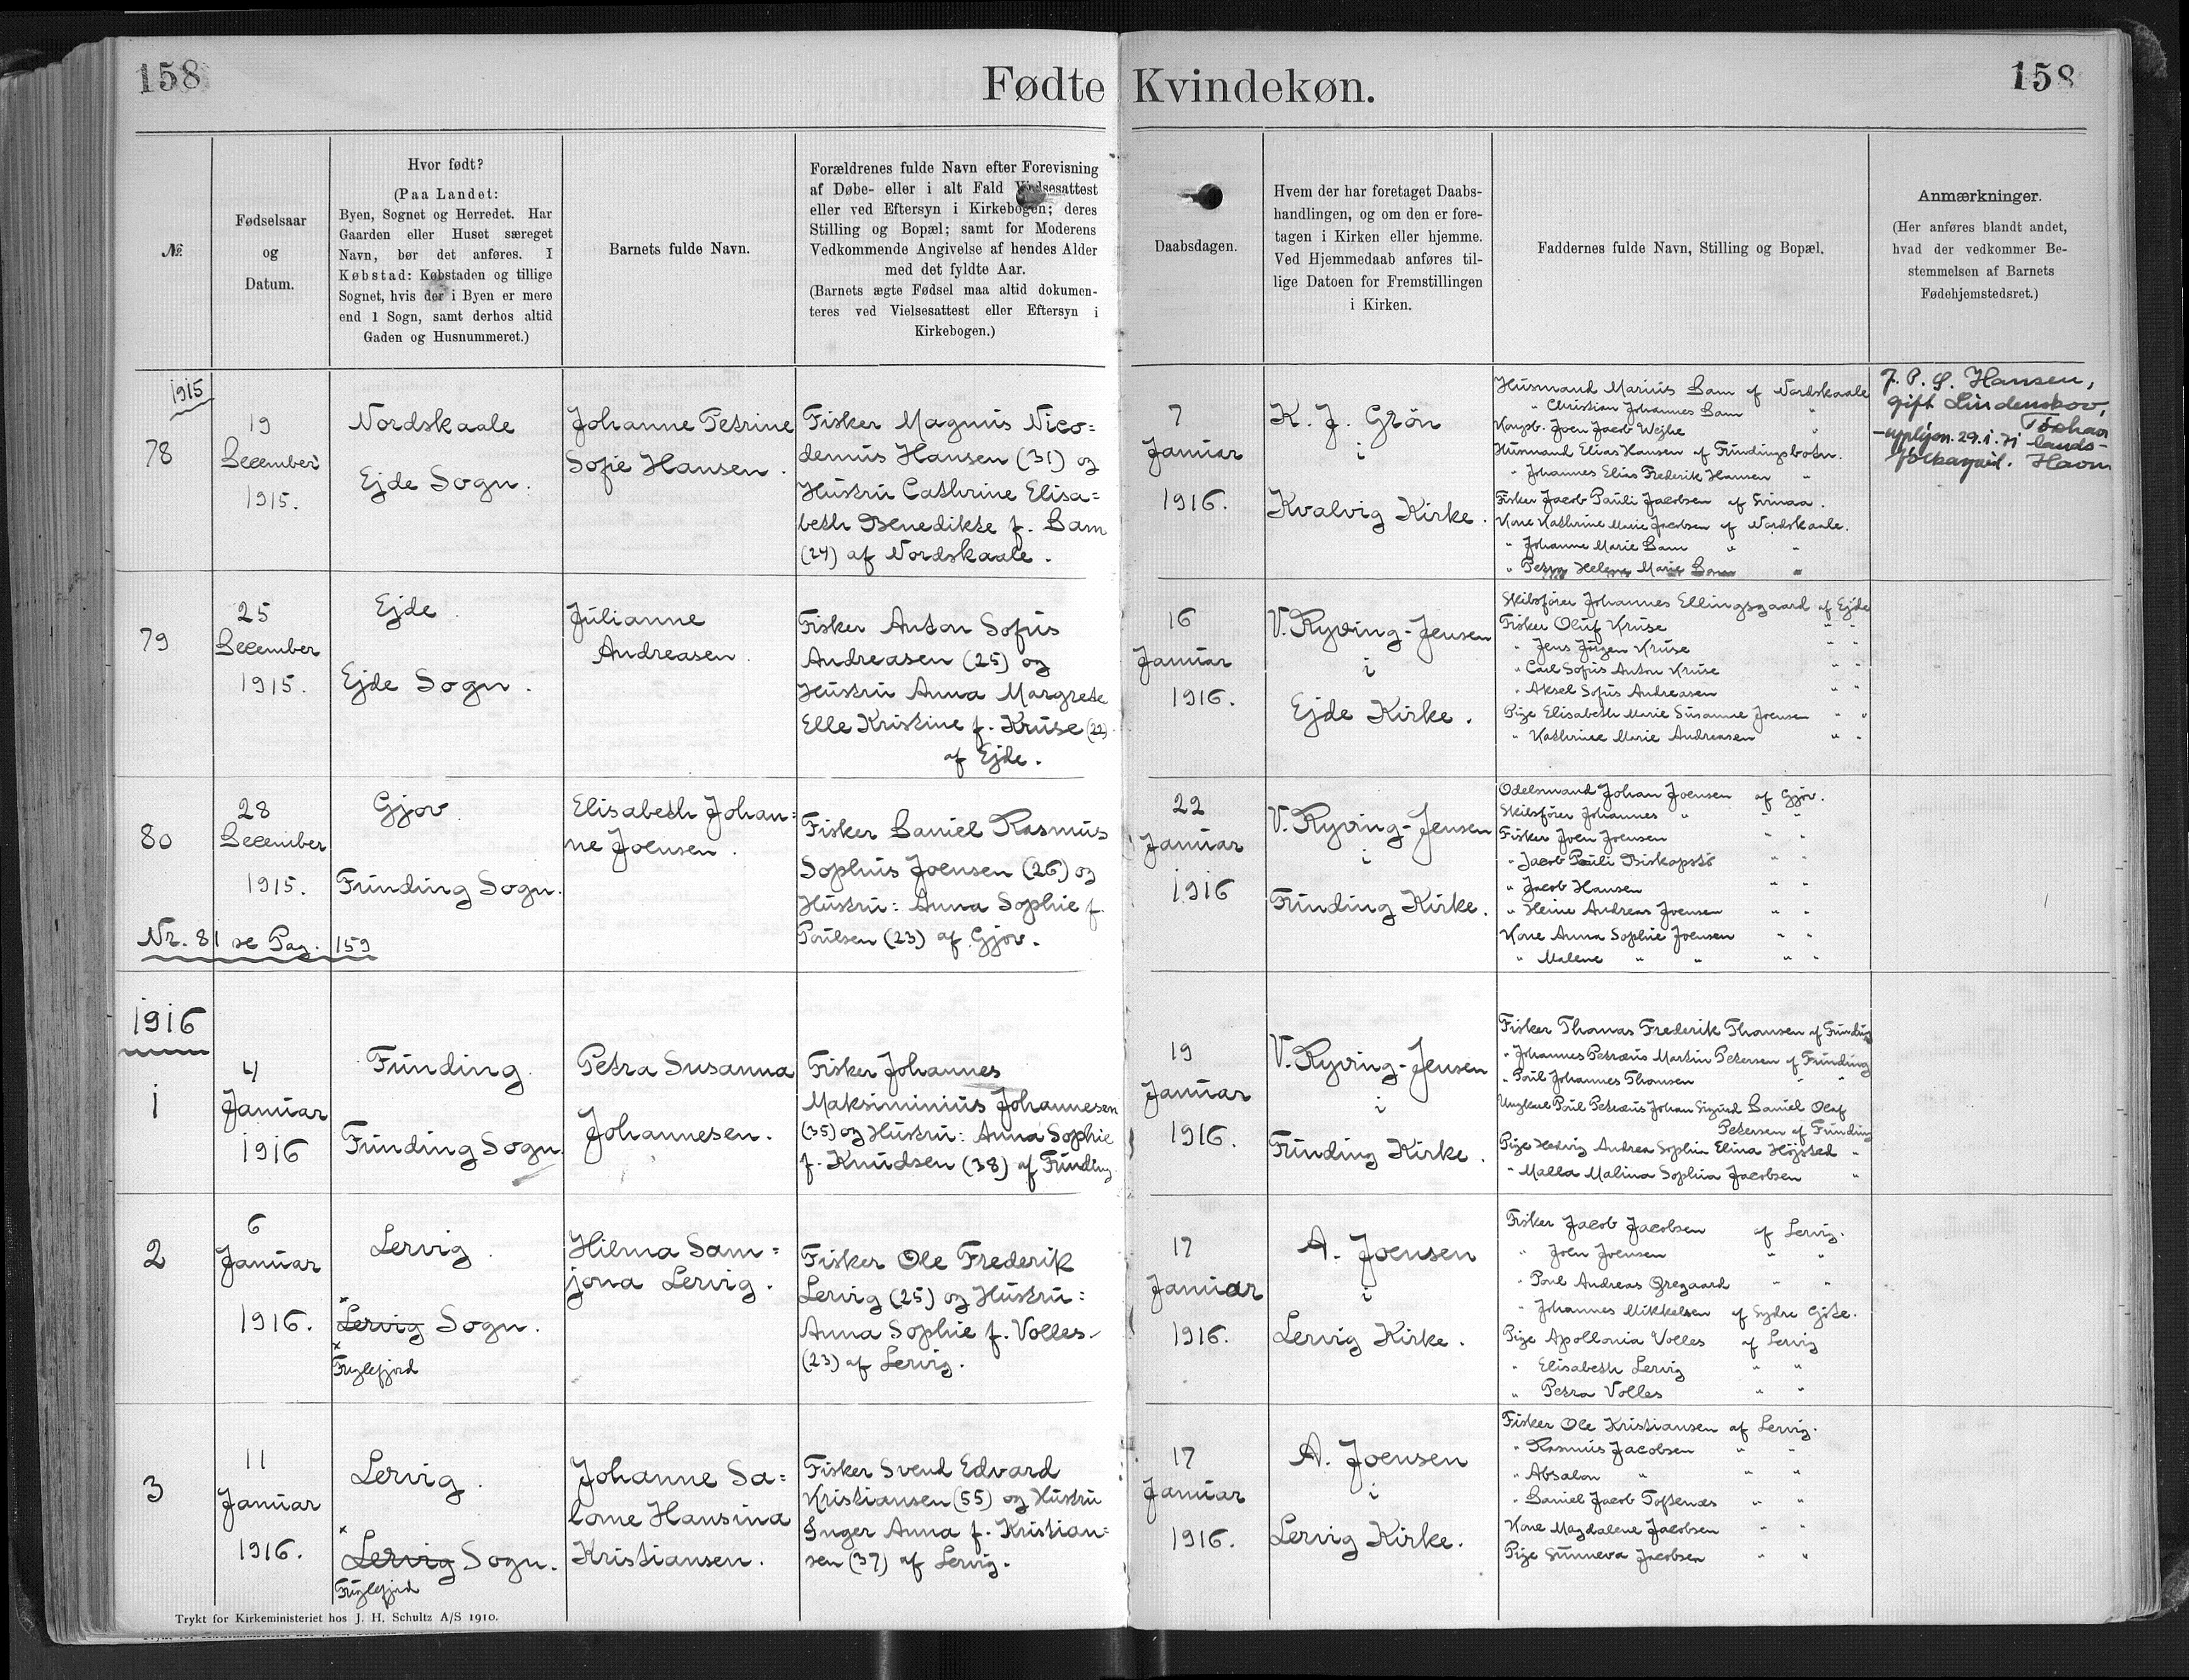 158
Fødte Kvindekøn.
158
№
Fødselsaar
og
Datum.
Hvor født?
(Paa Landet:
Byen, Sognet og Herredet. Har
Gaarden eller Huset særeget
Navn, bør det anføres. I
Købstad: Købstaden og tillige
Sognet, hvis der i Byen er mere
end 1 Sogn, samt derhos altid
Gaden og Husnummeret.)
Barnets fulde Navn.
Forældrenes fulde Navn efter Forevisning
af Døbe- eller i alt Fald Vielsesattest
eller ved Eftersyn i Kirkebogen; deres
Stilling og Bopæl; samt for Moderens
Vedkommende Angivelse af hendes Alder
med det fyldte Aar.
(Barnets ægte Fødsel maa altid dokumen-
teres ved Vielsesattest eller Eftersyn i
Kirkebogen.)
Daabsdagen.
Hvem der har foretaget Daabs-
handlingen, og om den er fore-
tagen i Kirken eller hjemme.
Ved Hjemmedaab anføres til-
lige Datoen for Fremstillingen
i Kirken.
Faddernes fulde Navn, Stilling og Bopæl.
Anmærkninger.
(Her anføres blandt andet,
hvad der vedkommer Be-
stemmelsen af Barnets
Fødehjemstedsret.)
1915
78
19
December
1915.
Nordskaale
Ejde Sogn.
Johanne Petrine
Sofie Hansen.
Fisker Magnus Nico=
demus Hansen (31) og
Hustru Cathrine Elisa=
beth Benedikte f. Dam
(24) af Nordskaale.
7
Januar
1916.
K. J. Grön
i
Kvalvig Kirke.
Husmand Marius Dam af Nordskaale
" Christian Johannes Dam "
Kongsb. Joen Jacob Wejhe "
Husmand Elias Hansen af Fundingsbotn.
" Johannes Elias Frederik Hansen "
Fisker Jacob Pauli Jacobsen af Svinaa.
Kone Kathrine Marie Jacobsen af Nordskaale.
" Johanne Marie Dam " "
" Petra Helene Marie Dam "
J. P. S. Hansen,
gift Lindenskov,
Tórshavn
-upplýsn. 29.1.71 lands-
fólkayvirl. Havn
79
25
December
1915.
Ejde
Ejde Sogn.
Julianne
Andreasen.
Fisker Anton Sofus
Andreasen (25) og
Hustru Anna Margrete
Elle Kristine f. Kruse (22)
af Ejde.
16
Januar
1916.
V. Ryving-Jensen
i
Ejde Kirke.
Skibsfører Johannes Ellingsgaard af Ejde
Fisker Oluf Kruse " "
" Jens Jörgen Kruse " "
" Carl Sofus Anton Kruse " "
" Aksel Sofus Andreasen " "
Pige Elisabeth Marie Susanne Joensen " "
" Kathrine Marie Andreasen " "
80
28
December
1915.
Gjov
Funding Sogn.
Elisabeth Johan=
ne Joensen.
Fisker Daniel Rasmus
Sophus Joensen (26) og
Hustru: Anna Sophie f.
Poulsen (23) af Gjov.
22
Januar
1916
V. Ryving-Jensen
i
Funding Kirke.
Odelsmand Johan Joensen af Gjov.
Skibsfører Johannes " " "
Fisker Joen Joensen " "
" Jacob Pauli Biskopstö " "
" Jacob Hansen " "
" Heine Andreas Joensen " "
Kone Anna Sophie Joensen " "
" Malene " " " "
Nr. 81 se Pag. 159
1916
1
4
Januar
1916
Funding
Funding Sogn.
Petra Susanna
Johannesen.
Fisker Johannes
Maksiminius Johannesen
(35) og Hustru: Anna Sophie
f. Knudsen (38) af Funding
19
Januar
1916.
V. Ryving-Jensen
i
Funding Kirke.
Fisker Thomas Frederik Thomsen af Funding
" Johannes Petræus Martin Petersen af Funding
" Poul Johannes Thomsen " "
Ungkarl Poul Petræus Johan Sigurd Daniel Olaf
Petersen af Funding
Pige Hedvig Andrea Sophia Elina Höjsted "
" Malla Malina Sophia Jacobsen "
2
6
Januar
1916.
Lervig.
× Lervig Sogn.
× Fuglefjord
Hilma Sam=
jona Lervig.
Fisker Ole Frederik
Lervig (25) og Hustru:
Anna Sophie f. Volles
(23) af Lervig.
17
Januar
1916.
A. Joensen
i
Lervig Kirke.
Fisker Jacob Jacobsen af Lervig.
" Joen Joensen " "
" Poul Andreas Øregaard " "
" Johannes Mikkelsen af Sydre Göte.
Pige Apollonia Volles af Lervig
" Elisabeth Lervig " "
" Petra Volles " "
3
11
Januar
1916.
Lervig.
× Lervig Sogn.
Fuglefjord
Johanne Sa=
lome Hansina
Kristiansen.
Fisker Svend Edvard
Kristiansen (55) og Hustru
Inger Anna f. Kristian=
sen (37) af Lervig.
17
Januar
1916.
A. Joensen
i
Lervig Kirke.
Fisker Ole Kristiansen af Lervig.
" Rasmus Jacobsen " "
" Absalon " " "
" Daniel Jacob Toftenæs " "
Kone Magdalene Jacobsen " "
Pige Sunneva Jacobsen " "
Trykt for Kirkeministeriet hos J. H. Schultz A/S 1910.